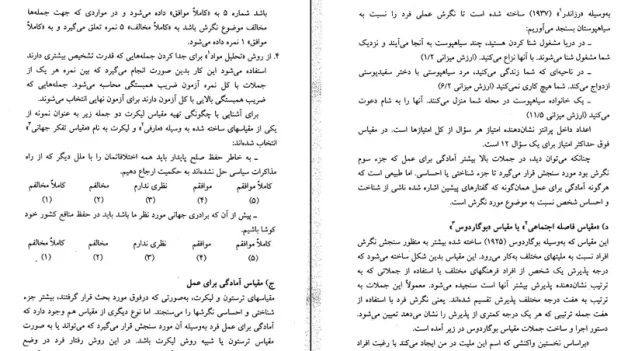 باشد شماره ۵ به «کاملاً موافق» داده می‌شود و در مواردی که جهت جمله‌ها
مخالف موضوع نگرش باشد به «کاملاً مخالف» ۵ نمره تعلق می‌گیرد و به «کاملاً
موافق» ۱ نمره داده می‌شود.
۴. از روش «تحلیل مواد» برای جدا کردن جمله‌هایی که قدرت تشخیص بیشتری دارند
استفاده می‌شود این کار بدین صورت انجام می‌گیرد که بین نمره هر یک از
جملات با کل نمره آزمون ضریب همبستگی محاسبه می‌شود. جمله‌هایی که
ضریب همبستگی بالایی با کل آزمون دارند برای آزمون نهایی انتخاب می‌شوند.
برای آشنایی با چگونگی تهیه مقیاس لیکرت دو جمله زیر به عنوان نمونه از
یکی از مقیاسهای ساخته شده به وسیله «مارفی» و لیکرت به نام «مقیاس تفکر جهانی»
انتخاب شده‌اند:
ــ به خاطر حفظ صلح پایدار باید همه اختلافاتمان را با ملل دیگر که از راه
مذاکرات سیاسی حل نشده‌اند به حکمیت ارجاع دهیم.
کاملاً موافقم موافقم نظری ندارم مخالفم کاملاً مخالفم
(۵) (۴) (۳) (۲) (۱)
ــ پیش از آن که برادری جهانی مورد نظر ما باشد باید در حفظ منافع کشور خود
کوشا باشیم.
کاملاً موافقم موافقم نظری ندارم مخالفم کاملاً مخالفم
(۵) (۴) (۳) (۲) (۱)
ج) مقیاس آمادگی برای عمل
مقیاسهای ترستون و لیکرت، به‌صورتی که درفوق مورد بحث قرار گرفتند، بیشتر جزء
شناختی و احساسی نگرشها را می‌سنجند. اما نوع دیگری از مقیاس هم وجود دارد که
آمادگی برای عمل فرد به‌وسیله آن مورد سنجش قرار می‌گیرد که می‌تواند یا به صورت
مقیاس ترستون یا شبیه روش لیکرت باشد. در این روش رفتار فرد در وضع
به‌وسیله «رزاندر» (۱۹۳۷) ساخته شده است تا نگرش عملی فرد را نسبت به
سیاهپوستان بسنجد می‌آوریم:
ــ در دریا مشغول شنا کردن هستید، چند سیاهپوست به آنجا می‌آیند و نزدیک
شما مشغول شنا می‌شوند. با آنها نزاع می‌کنید. (ارزش میزانی ۱/۲)
ــ در ناحیه‌ای که شما زندگی می‌کنید، مرد سیاهپوستی با دختر سفیدپوستی
ازدواج می‌کند. شما هیچ کاری نمی‌کنید (ارزش میزانی ۶/۲)
ــ یک خانواده سیاهپوست در محله شما منزل می‌کنند. آنها را به شام دعوت
می‌کنید (ارزش میزانی ۱۱/۵)
اعداد داخل پرانتز نشان‌دهنده امتیاز هر سؤال از کل امتیازها است. در مقیاس
فوق حداکثر امتیاز برای یک سؤال ۱۲ است.
چنانکه می‌توان دید، در جملات بالا بیشتر آمادگی برای عمل که جزء سوم
نگرش بود مورد سنجش قرار می‌گیرد تا جزء شناختی یا احساسی. اما طبیعی است که
هرگونه آمادگی برای عمل همان‌گونه که گفتارهای پیشین اشاره شده ناشی از شناخت
و احساس شخص نسبت به موضوع مورد نگرش است.
د) «مقیاس فاصله اجتماعی» یا مقیاس «بوگاردوس»
این مقیاس که به‌وسیله بوگاردوس (۱۹۲۵) ساخته شده بیشتر به منظور سنجش نگرش
افراد نسبت به ملیتهای مختلف به‌کار می‌رود. این مقیاس بدین شکل ساخته می‌شود که
درجه پذیرش یک شخص از افراد فرهنگهای مختلف با استفاده از جملاتی که به
ترتیب نشان‌دهنده پذیرش بیشتر آنها است سنجیده می‌شود. معمولاً این جملات به
ترتیب به هفت درجه مختلف پذیرش تقسیم شده‌اند. یعنی نگرش فرد با استفاده از
هفت جمله ترتیبی که هر یک درجه کمتری از پذیرش را نشان می‌دهد تعیین می‌شود.
دستور اجرا و ساخت جملات مقیاس بوگاردوس در زیر آمده است.
«براساس نخستین واکنشی که اسم این ملیت در من ایجاد می‌کند با رغبت افراد